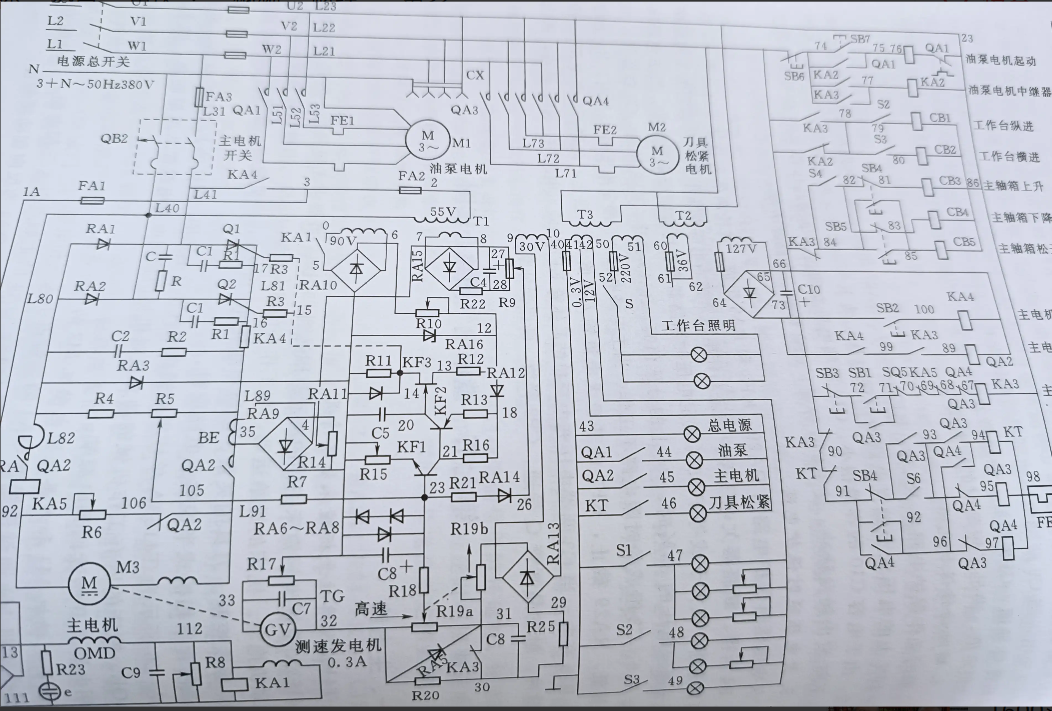 U1 U2 L23
L2 V1 V2 L22
L1 W1 W2 L21
电源总开关
N
3+N～50Hz380V
FA3
L31
QA1
L51
L52
L53
CX
QA3
QA4
FE1
M
3～
M1
油泵电机
L73
L72
L71
FE2
M2
M
3～
刀具
松紧
电机
QB2
主电机
开关
KA4
3
FA2
2
1A
FA1
L41
L40
55V
T1
T3
T2
RA1
Q1
C
C1
R1
17
R3
L81
R
RA2
Q2
R3
15
L80
C1
R1
16
KA4
C2
R2
RA3
R4
R5
L89
RA9
35
4
BE
L82
QA2
QA2
R14
RA11
KA1
0
90V
6
5
RA10
7
8
RA15
27
C4
28
R22
R9
9
30V
10
40
41
42
50
51
0.3V
12V
52
220V
S
60
36V
61
62
127V
64
65
66
73
C10
R10
12
RA16
R11
KF3
13
R12
RA12
14
KF2
R13
18
C5
20
KF1
21
R16
R15
23
R21
RA14
26
R7
105
106
L91
92
KA5
R6
QA2
RA6～RA8
R19b
RA13
C8
R18
R17
33
C7
TG
GV
32
高速
R19a
31
29
C8
R25
KA3
R20
30
M
M3
主电机
测速发电机
0.3A
13
OMD
112
R23
e
C9
R8
KA1
111
工作台照明
43
总电源
QA1 44 油泵
QA2 45 主电机
KT 46 刀具松紧
S1 47
S2 48
S3 49
SB7
74 75 76
QA1
23
SB6
QA1
油泵电机起动
KA2
77
KA2
油泵电机中继器
KA3
S2
78
CB1
工作台纵进
KA3
79
S3
80
CB2
工作台横进
KA2
S4
82
SB4
81
CB3
86
主轴箱上升
SB5
83
CB4
主轴箱下降
KA3
84
85
CB5
主轴箱松
SB2
100
KA4
主电
KA4
99
KA3
89
QA2
主电
SB3 SB1 SQ5 KA5 QA4
72 71 70 69 68 67
KA3
主
QA3
KA3
90
QA3
93
QA3
94
KT
KT
QA3
QA4
QA3
98
91
SB4
S6
95
QA4
92
QA4
96
97
QA3
QA4